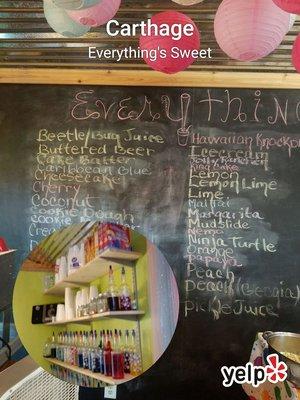 Carthage
Everything's Sweet
EVERYTHING
Beetle/Bug Juice
Buttered Beer
Cake Batter
Caribbean Blue
Cheesecake
Cherry
Coconut
Cookie Dough
Hawaiian Knockou
Icecream
Jolly Rancher
King Cake
Lemon
Lemon Lime
Lime
MaiTai
Margarita
Mudslide
Nemo
Ninja Turtle
Orange
Papaya
Peach
Peach (Georgia)
Pickle Juice
yelp